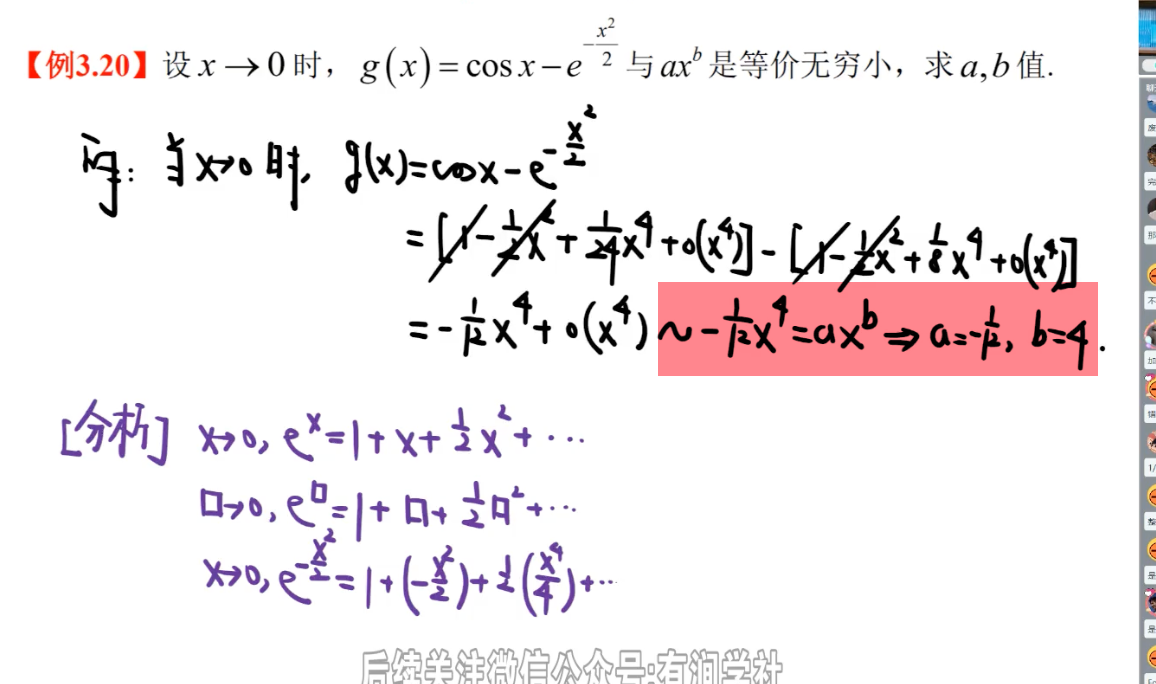 【例3.20】设 x → 0 时， g(x) = cos x − e^{−x²/2} 与 ax^b 是等价无穷小，求 a, b 值.
当 x→0 时, g(x) = cosx − e^{−x²/2}
= [1 − 1/2 x² + 1/24 x⁴ + o(x⁴)] − [1 − 1/2 x² + 1/8 x⁴ + o(x⁴)]
= − 1/12 x⁴ + o(x⁴) ~ − 1/12 x⁴ = ax^b ⇒ a = − 1/12, b = 4.
[分析] x→0, e^x = 1 + x + 1/2 x² + ⋯
□→0, e^□ = 1 + □ + 1/2 □² + ⋯
x→0, e^{−x²/2} = 1 + (−x²/2) + 1/2 (x⁴/4) + ⋯
后续关注微信公众号:有润学社